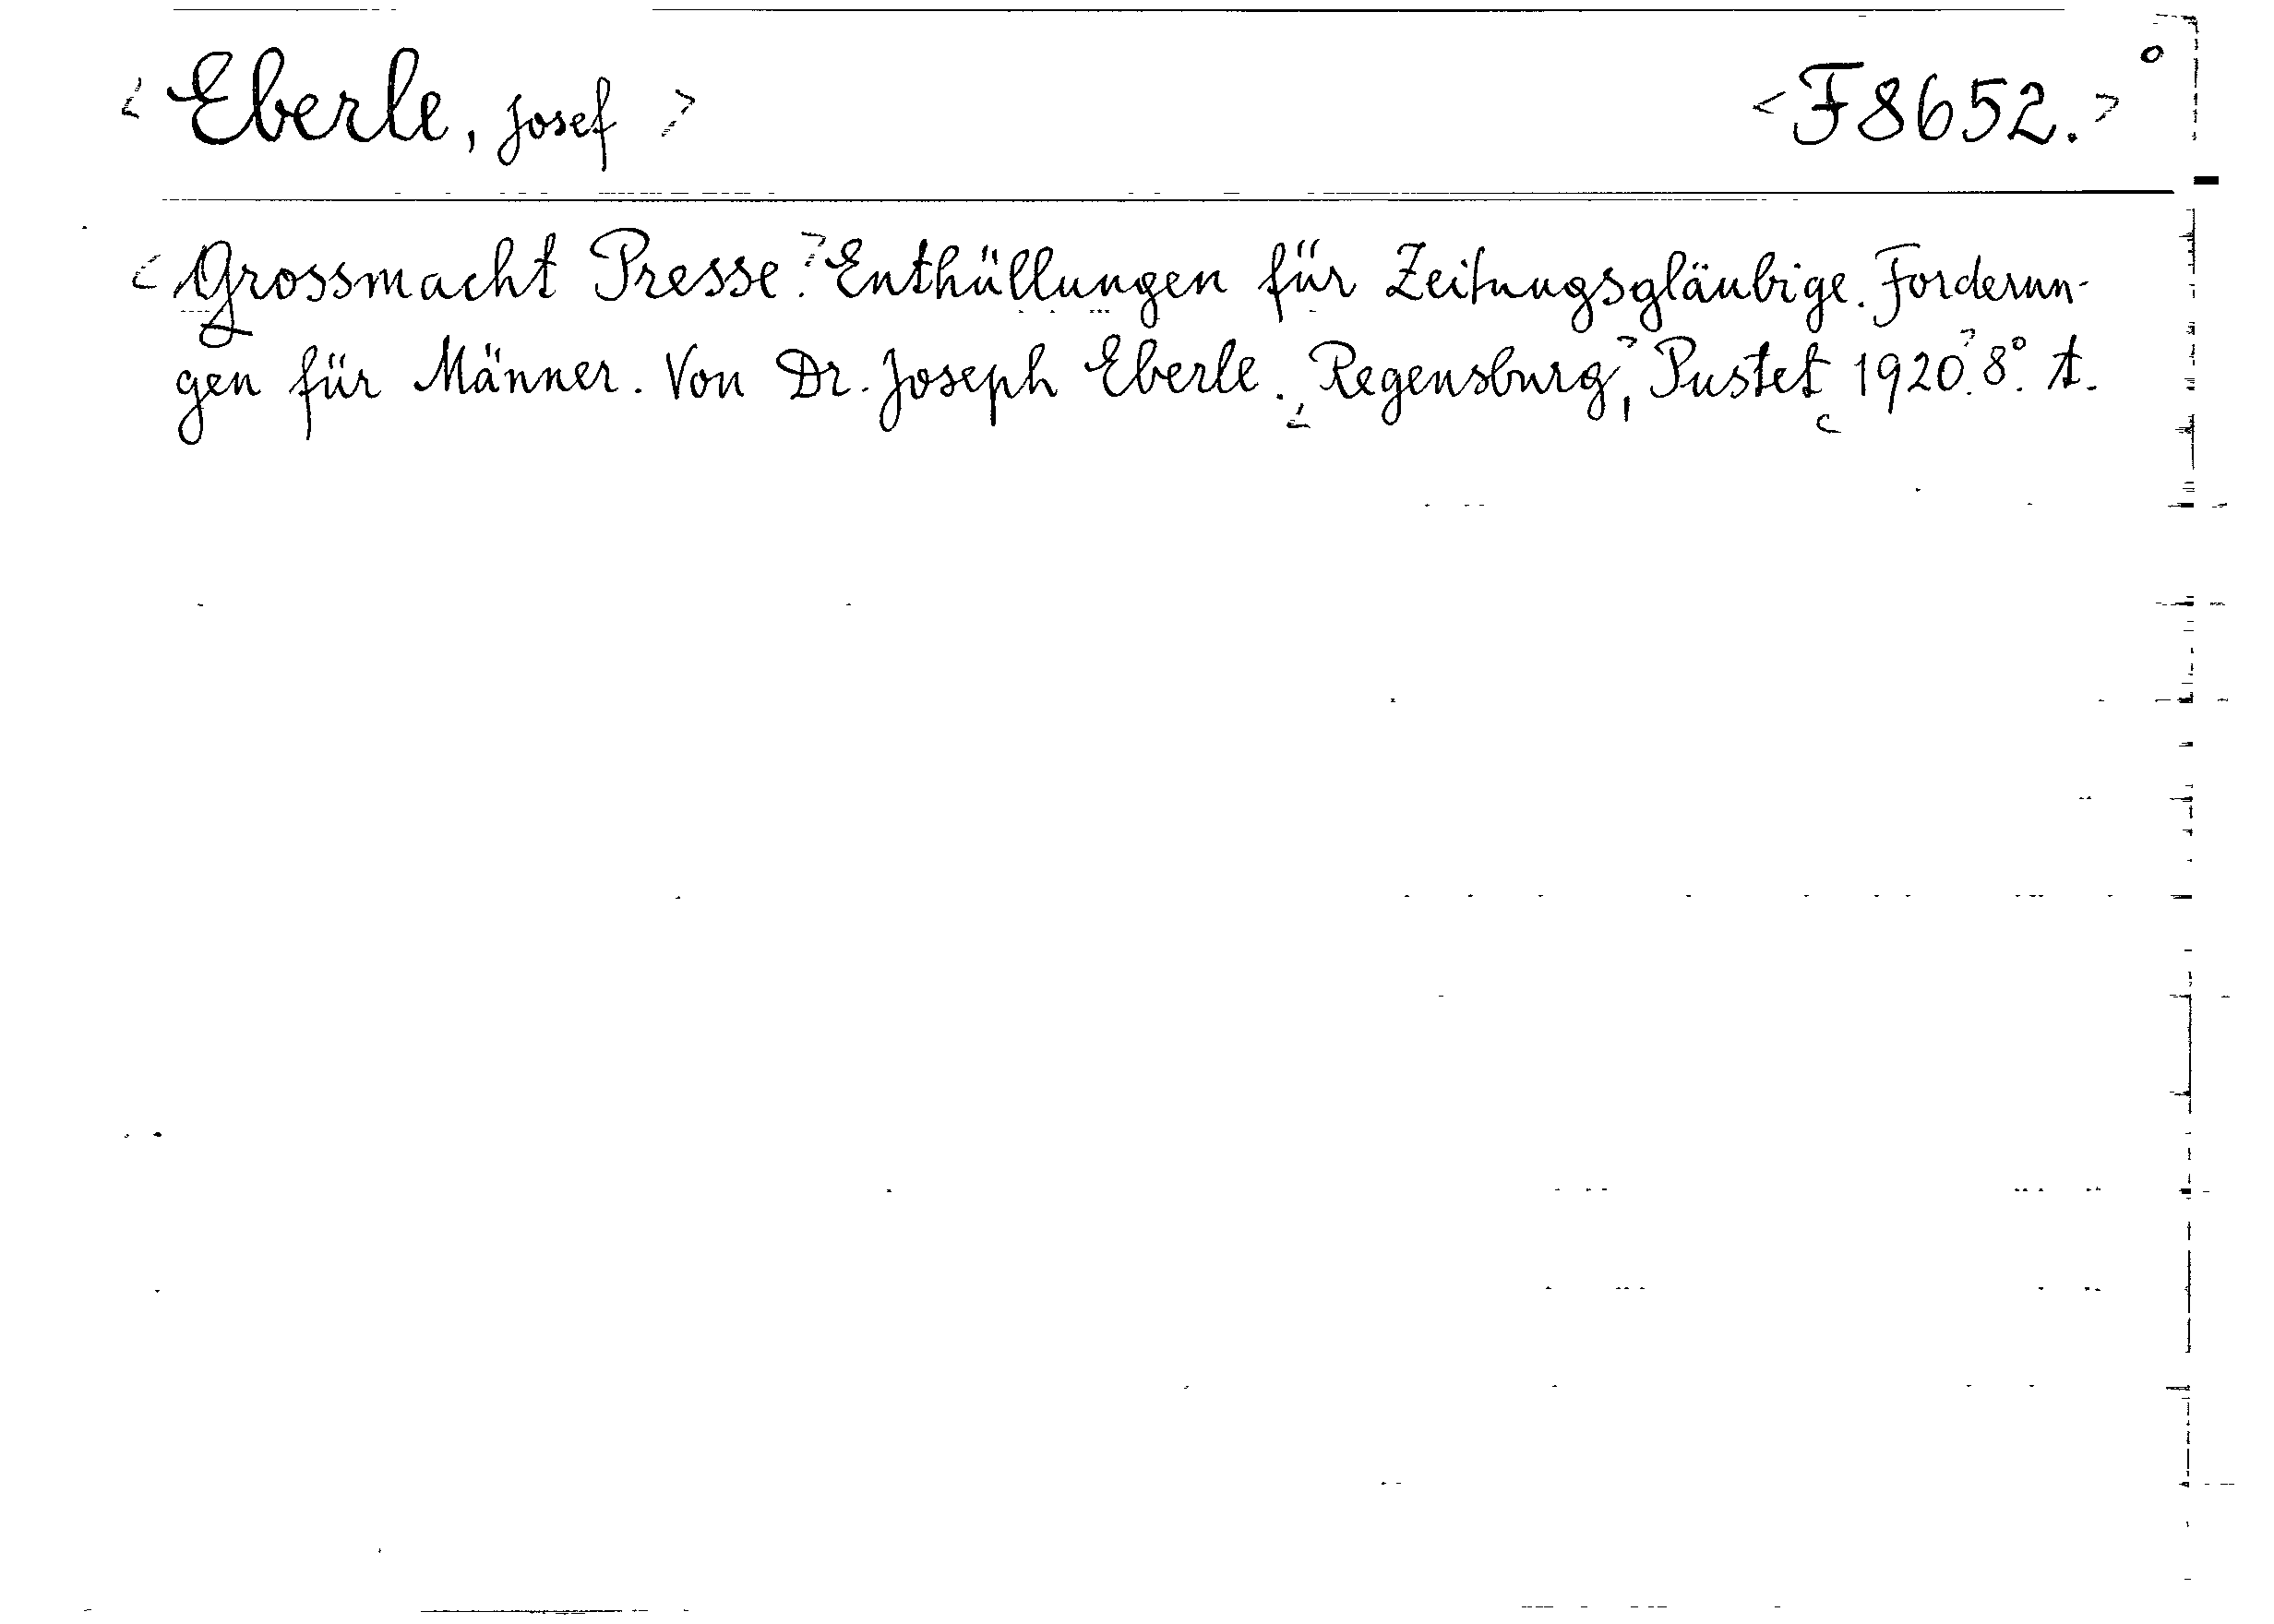 <Eberle, Josef> <F8652.> °
<Grossmacht Presse.> Enthüllungen für Zeitungsgläubige. Forderun-
gen für Männer. Von Dr. Joseph Eberle. <Regensburg>, Pustet <1920>. 8°. A.